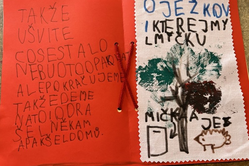 TAKŽE
UŠVITE
COSESTALO
NEBUOTOOPAK
ALEPOKRAČUJEME
TAKŽEDEME
NATOIDRA
ŠEL NĚKAM
APAKŠELDOMŮ
O JEŽKOVI
I KTEREJ MY
LMYČKU
MÍČKA
JEŽ